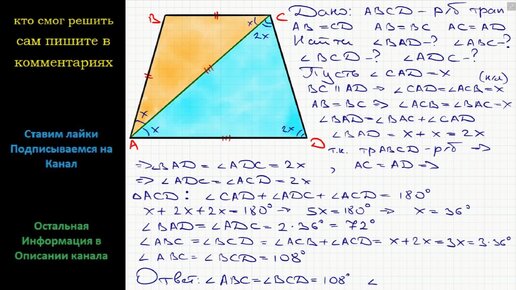 кто смог решить
сам пишите в
комментариях
Ставим лайки
Подписываемся на
Канал
Остальная
Информация в
Описании канала
B
C
A
D
x
2x
x
x
2x
Дано: ABCD - р/б трап
AB = CD AB = BC AC = AD
Найти ∠BAD-? ∠ABC-?
∠BCD-? ∠ADC-?
Пусть ∠CAD = x (н/л)
BC ∥ AD → ∠CAD = ∠ACB = x
AB = BC ⇒ ∠BCA = ∠BAC = x
∠BAD = ∠BAC + ∠CAD
∠BAD = x + x = 2x
т.к. трABCD - р/б ⇒
⇒ ∠BAD = ∠ADC = 2x , AC = AD ⇒
⇒ ∠ADC = ∠ACD = 2x
△ACD: ∠CAD + ∠ADC + ∠ACD = 180°
x + 2x + 2x = 180° → 5x = 180° → x = 36°
∠BAD = ∠ADC = 2·36° = 72°
∠ABC = ∠BCD = ∠ACB + ∠ACD = x + 2x = 3x = 3·36°
∠ABC = ∠BCD = 108°
Ответ: ∠ABC = ∠BCD = 108° ∠